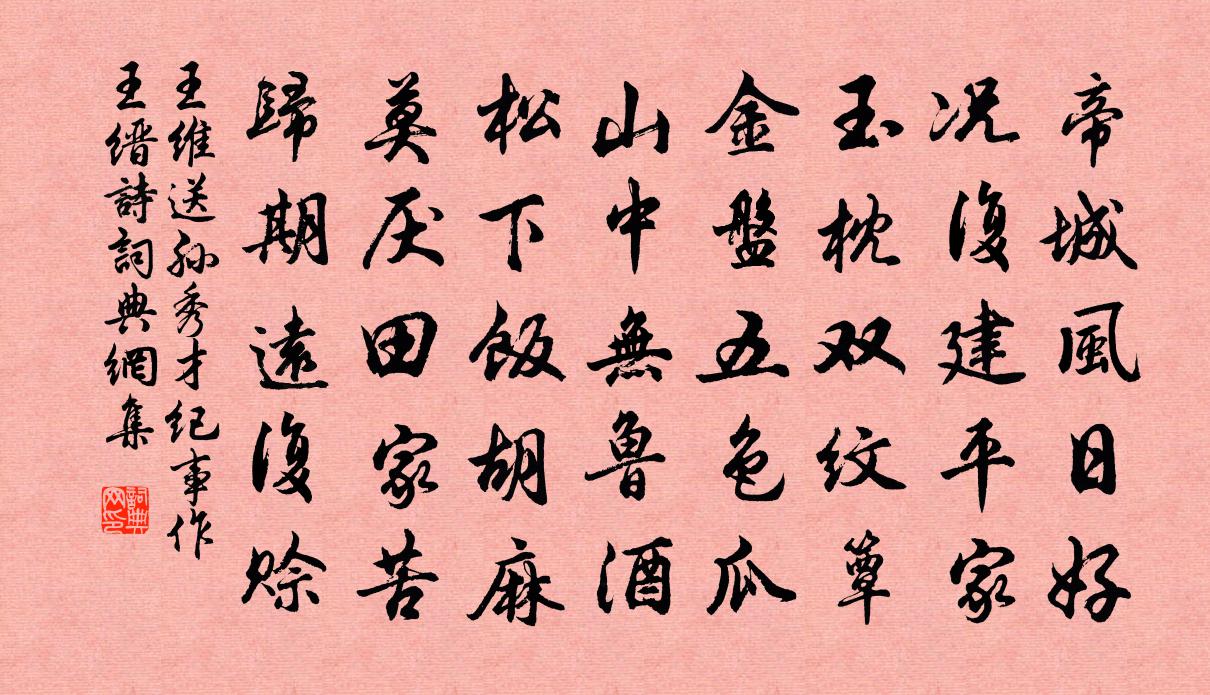 帝城風日好
况復建平家
玉枕双紋簟
金盤五色瓜
山中無魯酒
松下飯胡麻
莫厌田家苦
歸期遠復赊
王維送孙秀才纪事作
王缙詩詞典網集
詞典网印